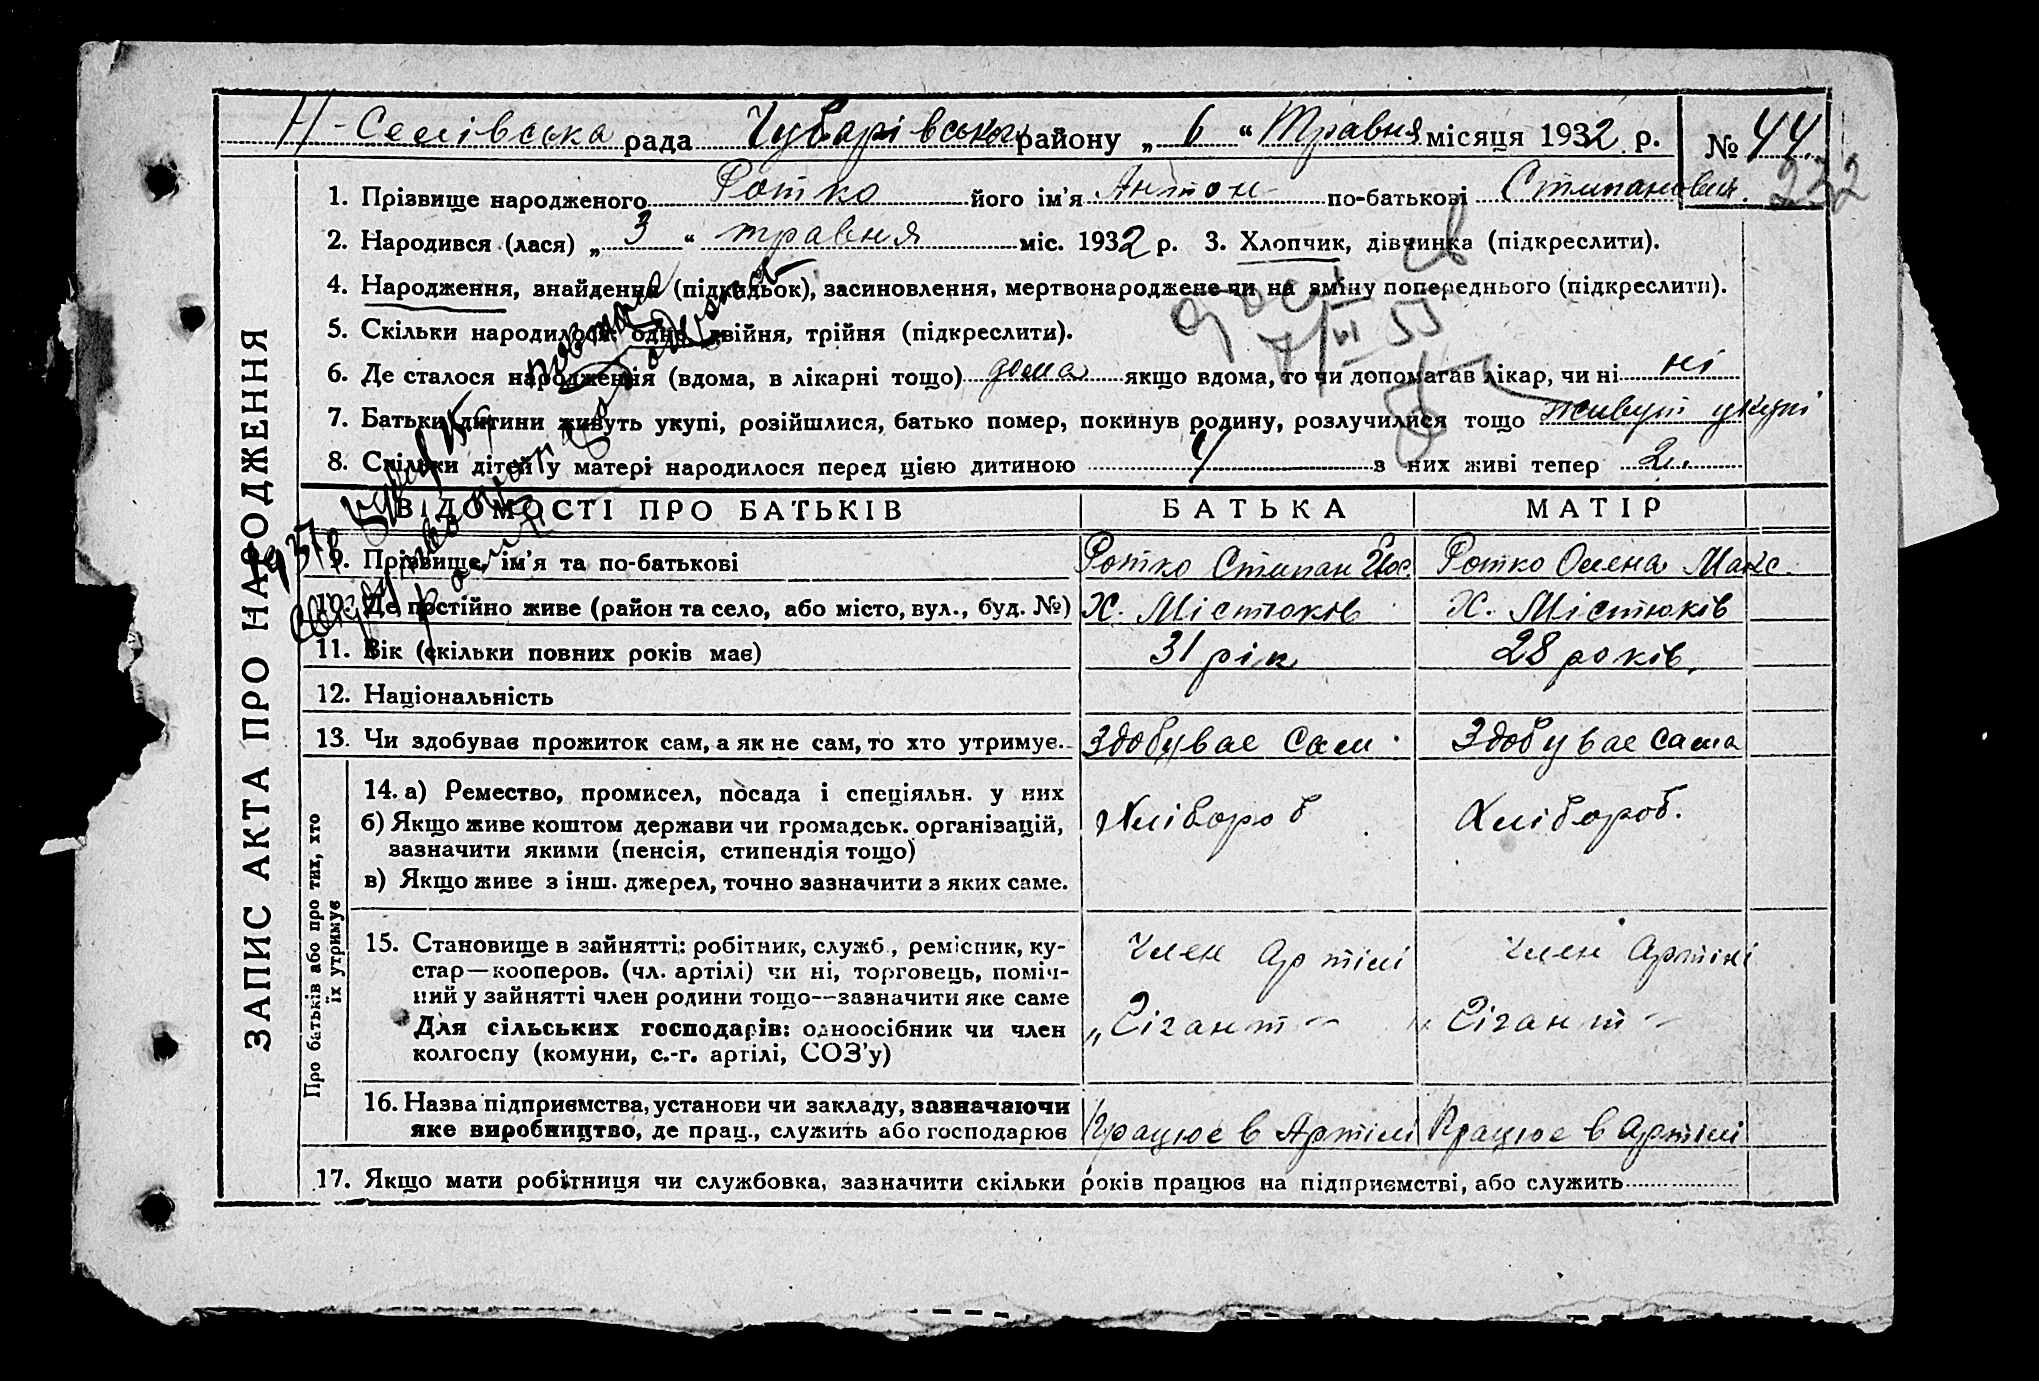 Н-Селівська рада Чубарівського району „6“ Травня місяця 1932 р. № 44
232
1. Прізвище народженого Ротко його ім'я Антон по-батькові Стипанович.
2. Народився (лася) „3“ травня міс. 1932 р. 3. Хлопчик, дівчинка (підкреслити).
4. Народження, знайдення (підкидьок), засиновлення, мертвонароджене чи на зміну попереднього (підкреслити).
5. Скільки народилося: одно, двійня, трійня (підкреслити).
6. Де сталося народження (вдома, в лікарні тощо) дома якщо вдома, то чи допомагав лікар, чи ні ні
7. Батьки дитини живуть укупі, розійшлися, батько помер, покинув родину, розлучилися тощо живут укупі
8. Скільки дітей у матері народилося перед цією дитиною 4 з них живі тепер 2.
ВІДОМОСТІ ПРО БАТЬКІВ БАТЬКА МАТІР
9. Прізвище, ім'я та по-батькові Ротко Стипан Ротко Олена Макс.
10. Де постійно живе (район та село, або місто, вул., буд. №) Х. Містюків Х. Містюків
11. Вік (скільки повних років має) 31 рік 28 років.
12. Національність
13. Чи здобував прожиток сам, а як не сам, то хто утримує. Здобувае сам. Здобувае сама
14. а) Ремество, промисел, посада і спеціяльн. у них Хлібороб Хлібороб.
б) Якщо живе коштом держави чи громадськ. організацій,
зазначити якими (пенсія, стипендія тощо)
в) Якщо живе з інш. джерел, точно зазначити з яких саме.
15. Становище в зайнятті: робітник, служб., ремісник, ку-
стар—кооперов. (чл. артілі) чи ні, торговець, поміч-
ний у зайнятті член родини тощо—зазначити яке саме
Член Артілі Член Артілі
Для сільських господарів: одноосібник чи член
колгоспу (комуни, с.-г. артілі, СОЗ'у)
„Гігант“ „Гігант“
16. Назва підприємства, установи чи закладу, зазначаючи
яке виробництво, де прац., служить або господарює Працює в Артілі Працює в Артілі
17. Якщо мати робітниця чи службовка, зазначити скільки років працює на підприємстві, або служить
ЗАПИС АКТА ПРО НАРОДЖЕННЯ
Про батьків або про тих, хто
їх утримує